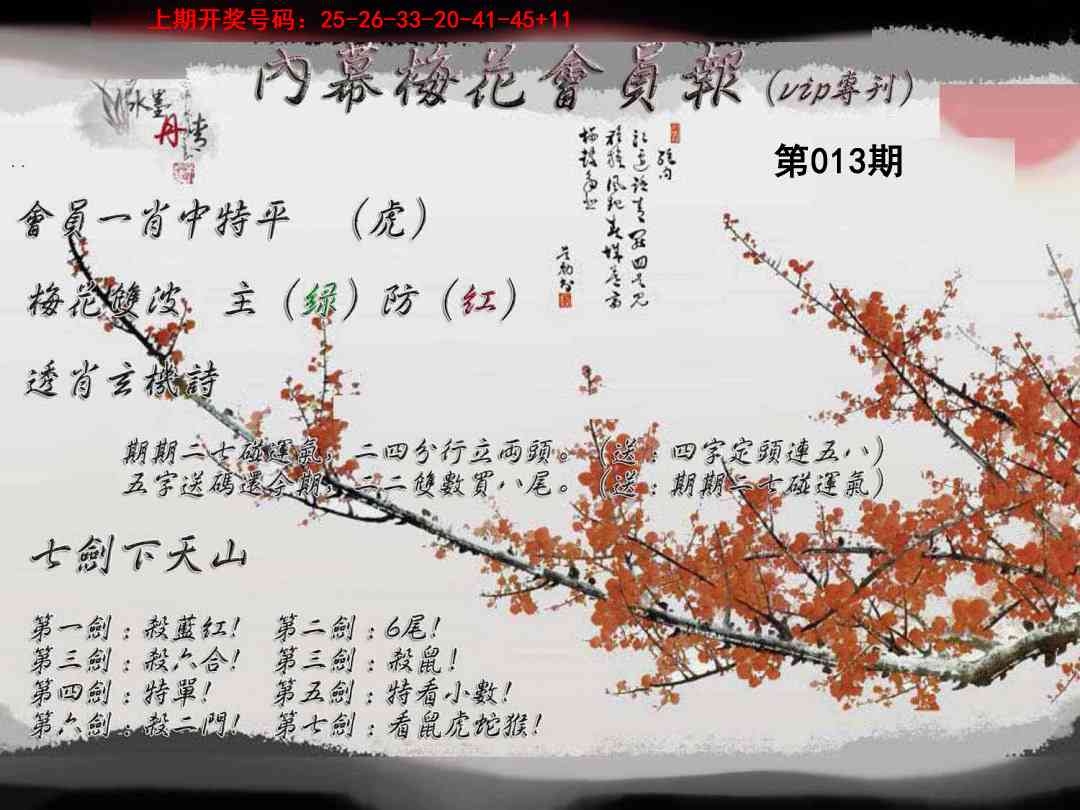 上期开奖号码：25-26-33-20-41-45+11
內幕梅花會員報（vip專刊）
水墨
丹青
第013期
會員一肖中特平 （虎）
梅花雙波 主（绿）防（红）
透肖玄機詩
期期二七碰運氣，二四分行立兩頭。（送：四字定頭連五八）
五字送碼還今期，二二雙數買八尾。（送：期期二七碰運氣）
七劍下天山
第一劍：殺藍紅！ 第二劍：6尾！
第三劍：殺六合！ 第三劍：殺鼠！
第四劍：特單！ 第五劍：特看小數！
第六劍：殺二門！ 第七劍：看鼠虎蛇猴！